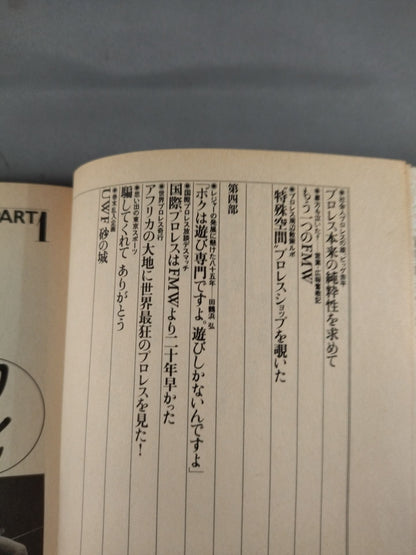 ●社会人プロレスの雄、ビッグ金年
プロレス本来の純粋性を求めて
●裏方も泣いた! 営業・広報奮戦記
もう一つのFMW
●プロレス周辺散策ルポ
“特殊空間”プロレスショップを覗いた
第四部
●レジャーの発展に懸けた八十五年──田鶴浜 弘
「ボクは遊び専門ですよ。遊びしかないんですよ」
●国際プロレス放談デスマッチ
国際プロレスはFMWより二十年早かった
●世界プロレス奇行
アフリカの大地に世界最狂のプロレスを見た!
●思い出の東京スポーツ
騙してくれて ありがとう
UWF 砂の城
PART1